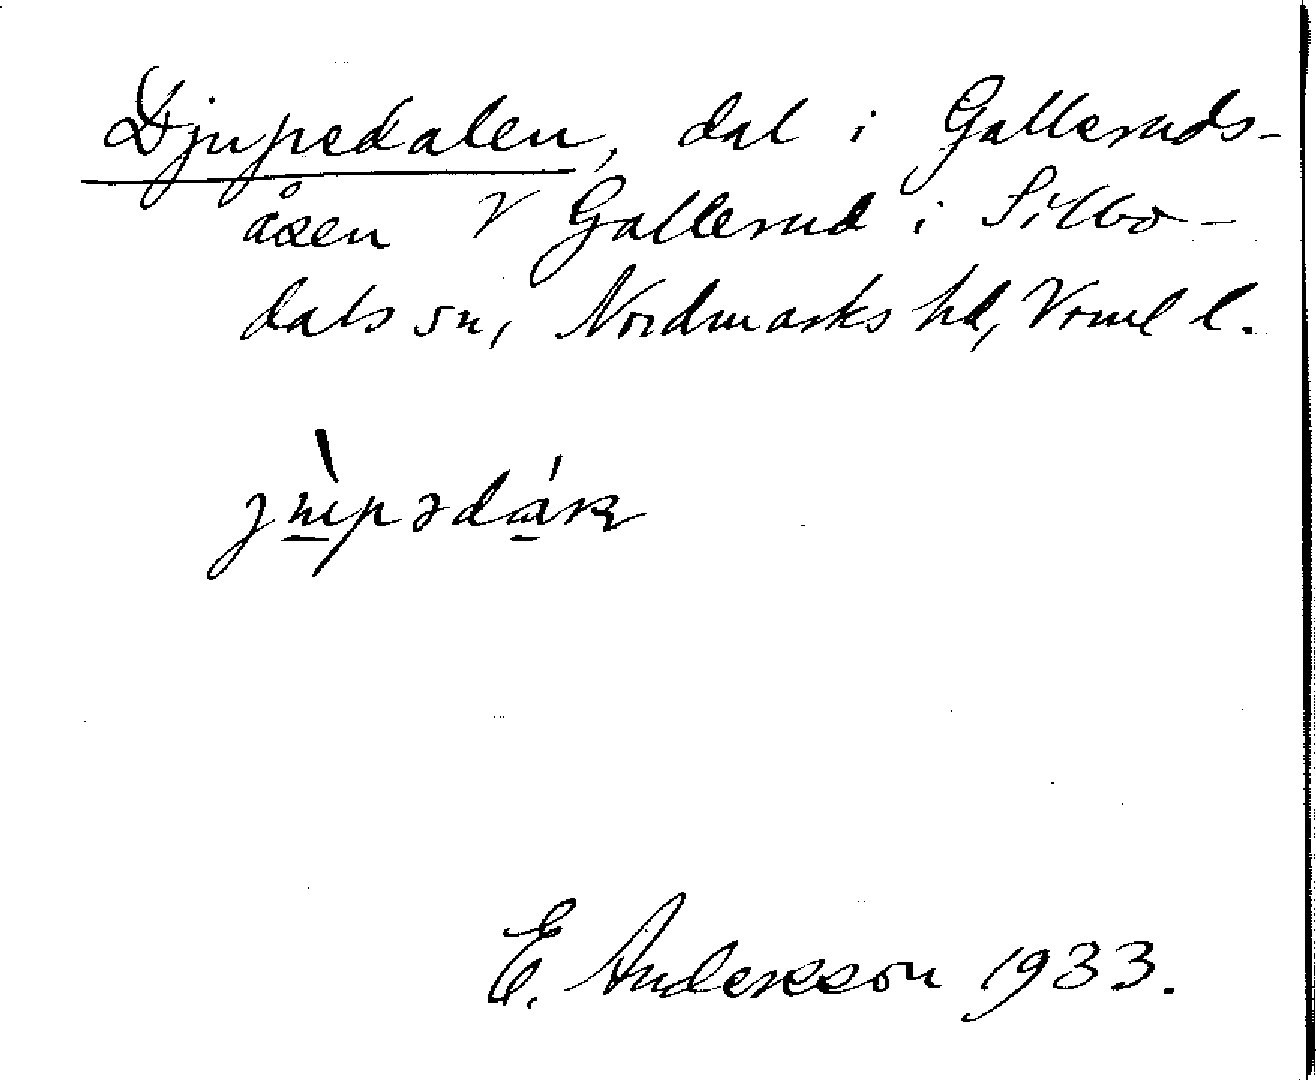 Djupedalen, dal i Galleruds-
åsen V Gallerud i Silbo-
dals sn, Nordmarks hd, Vrml l.
E. Andersson 1933.